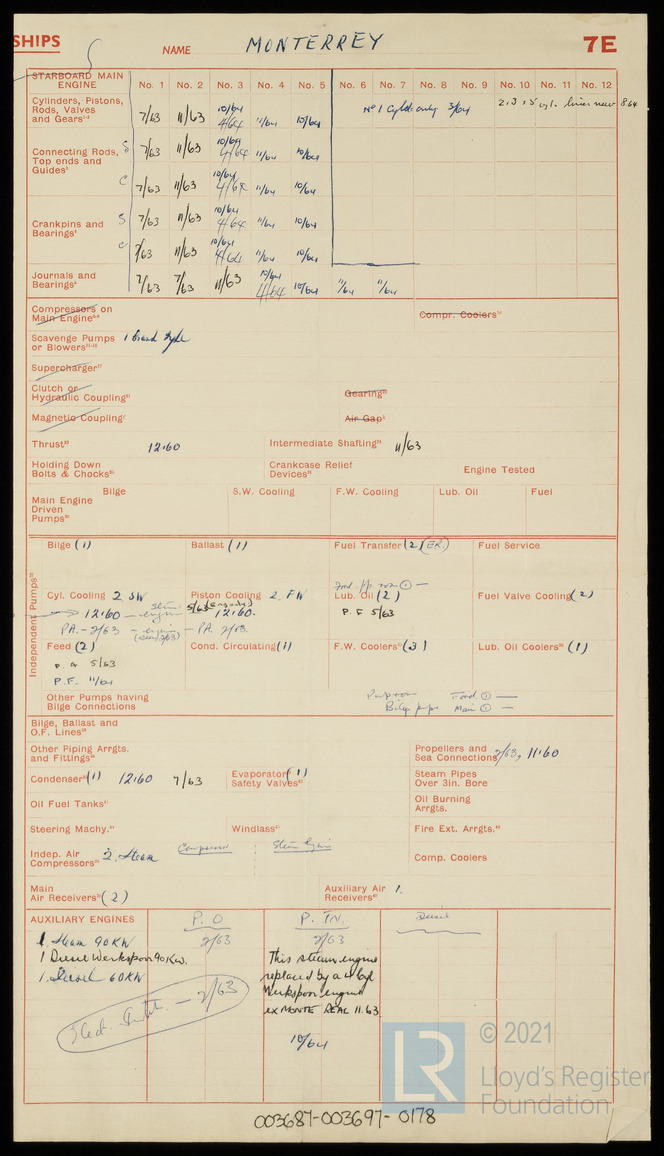 SHIPS
NAME MONTERREY 7E
STARBOARD MAIN ENGINE No. 1 No. 2 No. 3 No. 4 No. 5 No. 6 No. 7 No. 8 No. 9 No. 10 No. 11 No. 12
Cylinders, Pistons,
Rods, Valves
and Gears
7/63 11/63 10/64 4/64 11/64 10/64 No 1 Cyldr only 3/64 2.3 & 5 cyl. liner new 8.64
Connecting Rods,
Top ends and
Guides
S 7/63 11/63 10/64 4/64 11/64 10/64
C 7/63 11/63 10/64 4/64 11/64 10/64
Crankpins and
Bearings
S 7/63 11/63 10/64 4/64 11/64 10/64
C 7/63 11/63 10/64 4/64 11/64 10/64
Journals and
Bearings
7/63 7/63 11/63 10/64 4/64 10/64 11/64 11/64
Compressors on
Main Engine
Compr. Coolers
Scavenge Pumps
or Blowers
1
Supercharger
Clutch or
Hydraulic Coupling
Gearing
Magnetic Coupling
Air Gap
Thrust 12.60 Intermediate Shafting 11/63
Holding Down
Bolts & Chocks
Crankcase Relief
Devices
Engine Tested
Main Engine
Driven
Pumps
Bilge S.W. Cooling F.W. Cooling Lub. Oil Fuel
Independent Pumps
Bilge (1) Ballast (1) Fuel Transfer (2) (ER) Fuel Service
Cyl. Cooling 2 SW Piston Cooling 2 FW Lub. Oil (2) Fuel Valve Cooling (2)
12.60 steam engine 5/63 12.60. P.F 5/63
PA. - 2/63 - engine - PA. 2/63.
Feed (2) Cond. Circulating (1) F.W. Coolers (3) Lub. Oil Coolers (1)
P.A 5/63
P.F. 11/64
Other Pumps having
Bilge Connections
Pumproom Ford ① —
Bilge pumps Main ① —
Bilge, Ballast and
O.F. Lines
Other Piping Arrgts.
and Fittings
Propellers and
Sea Connections 2/63, 11.60
Condenser (1) 12.60 7/63
Evaporator (1)
Safety Valves
Steam Pipes
Over 3in. Bore
Oil Fuel Tanks
Oil Burning
Arrgts.
Steering Machy. Windlass Fire Ext. Arrgts.
Indep. Air
Compressors 2. Steam Compressor Steam Engine
Comp. Coolers
Main
Air Receivers (2)
Auxiliary Air
Receivers 1.
AUXILIARY ENGINES P.O P. IN. Diesel
1 Steam 90KW 2/63 2/63
1 Diesel Werkspoor 90Kw.
1. Diesel 60KW
This steam engine
replaced by a 4 cyl
Werkspoor engine
ex MONTE REAL 11.63.
- 2/63
10/64
LR
© 2021
Lloyd's Register
Foundation
003687-003697-0178